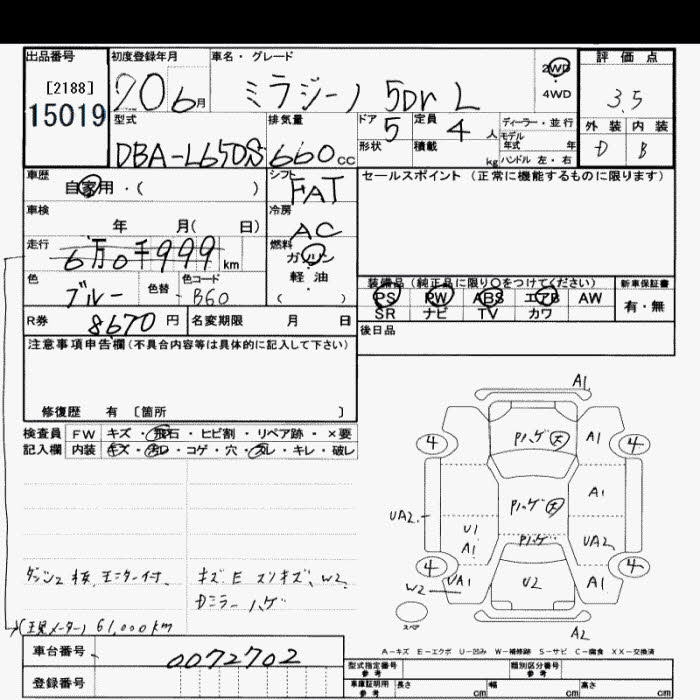 出品番号
[2188]
15019
初度登録年月
20 6月
車名・グレード
ミラジーノ 5Dr L
2WD
4WD
評価点
3.5
外装 内装
D B
型式
DBA-L650S
排気量
660 cc
ドア 5
形状
定員 4 人
積載 kg
ディーラー・並行
モデル
年式 年
ハンドル 左・右
車歴
自家用・( )
シフト
FAT
セールスポイント(正常に機能するものに限ります)
車検
年 月( 日)
冷房
AC
走行
6万0千999 km
燃料
ガソリン
軽油
( )
色
ブルー
色替
色コード
B60
装備品(純正品に限り○をつけてください)
PS PW ABS エアB AW
SR ナビ TV カワ
新車保証書
有・無
R券 8670 円
名変期限 月 日
後日品
注意事項申告欄(不具合内容等は具体的に記入して下さい)
修復歴 有 〔箇所 〕
検査員 FW キズ・飛石・ヒビ割・リペア跡・×要
記入欄 内装 キズ・汚レ・コゲ・穴・スレ・キレ・破レ
A1
4 Pハゲ 大 A1 4
Pハゲ 大 A1
UA2
U1 Pハゲ UA2
A1
4 UA1 U2 A1 4
W2
スペア
A2
キズ E スリキズ、W2
Dミラーハゲ
(現メーター) 61,000km
A-キズ E-エクボ U-凹み W-補修跡 S-サビ C-腐食 XX-交換済
車台番号 0072702
登録番号
型式指定番号
参考
類別区分番号
参考
車庫証明用
参考
長さ cm 幅 cm 高さ cm